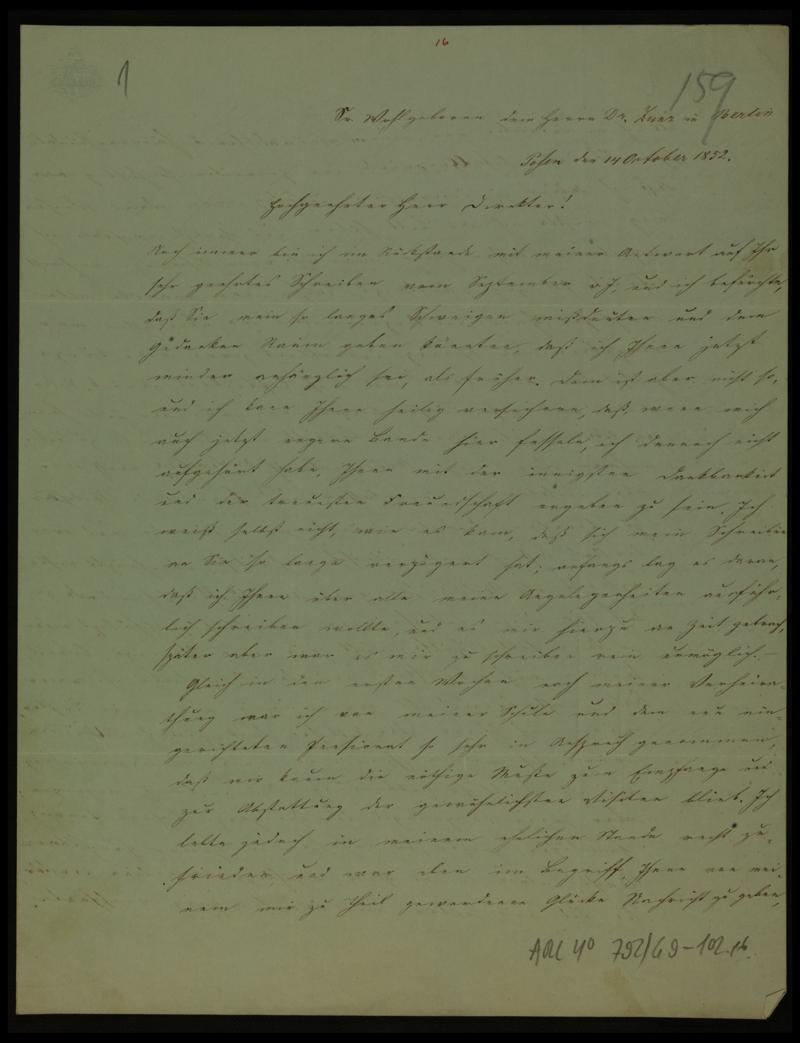 16
1
159
Sr. Wohlgeboren dem Herrn Dr. Zunz in Berlin
Posen den 14 October 1852.
Hochgeehrter Herr Direktor!
Noch immer bin ich im Rückstande mit meiner Antwort auf Ihr
sehr geehrtes Schreiben vom September v. J. und ich befürchte,
daß Sie mein so langes Schweigen mißdeuten und dem
Gedanken Raum geben könnten, daß ich Ihnen jetzt
minder anhänglich sei, als früher. Dem ist aber nicht so,
und ich kann Ihnen heilig versichern, daß, wenn mich
auch jetzt engere Bande hier fesseln, ich dennoch nicht
aufgehört habe, Ihnen mit der innigsten Dankbarkeit
und der treuesten Freundschaft ergeben zu sein. Ich
weiß selbst nicht, wie es kam, daß sich mein Schreiben
an Sie so lange verzögert hat; anfangs lag es daran,
daß ich Ihnen über alle meine Angelegenheiten ausführ-
lich schreiben wollte, und es mir hierzu an Zeit gebrach,
später aber war es mir zu schreiben rein unmöglich.—
Gleich in den ersten Wochen nach meiner Verheira-
thung war ich von meiner Schule und dem neu ein-
gerichteten Pensionat so sehr in Anspruch genommen,
daß mir kaum die nöthige Muße zum Empfange und
zur Abstattung der gewöhnlichsten Visiten blieb. Ich
lebte jedoch in meinem ehelichen Stande recht zu-
frieden und war eben im Begriff, Ihnen von mei-
nem mir zu Theil gewordenen Glücke Nachricht zu geben,
ARC 4° 792/G9-102.16